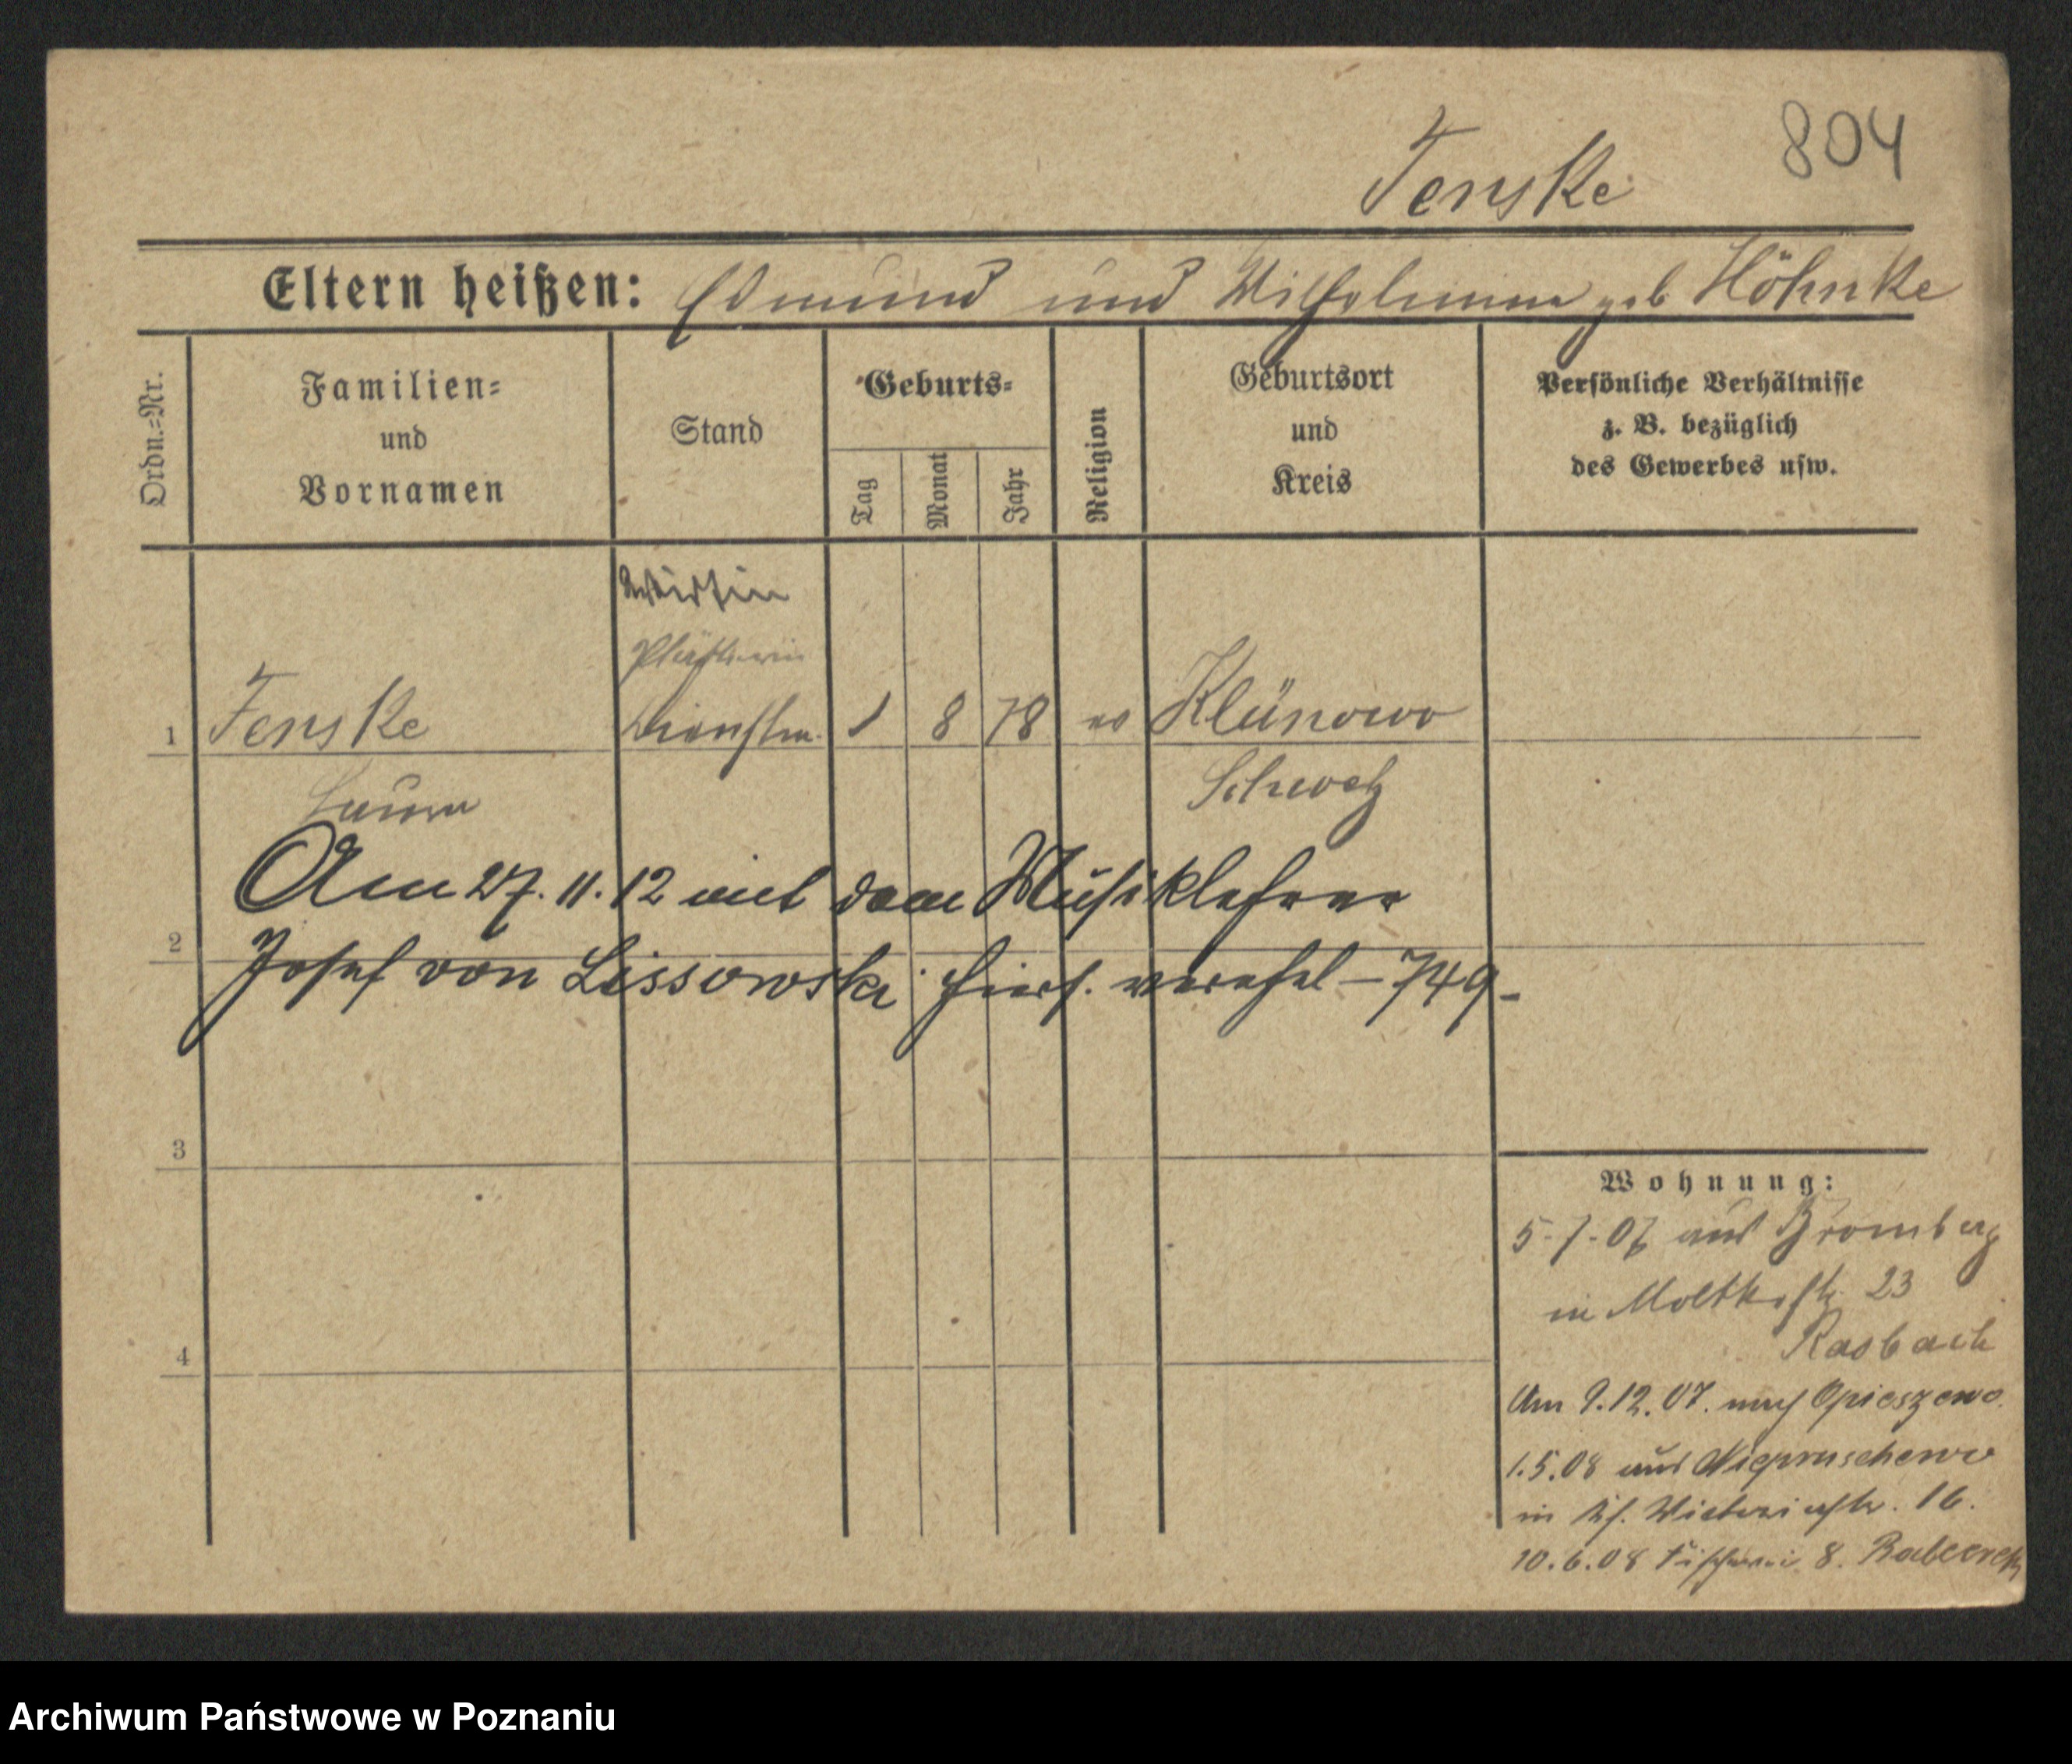 804
Fenske
Eltern heißen: Edmund und Wilhelmine geb Höhnke
Ordn.=Nr.
Familien=
und
Vornamen
Stand
Geburts=
Tag
Monat
Jahr
Religion
Geburtsort
und
Kreis
Persönliche Verhältnisse
z. B. bezüglich
des Gewerbes usw.
Wirtin
Plätterin
1 Fenske Dienstm. 1 8 78 ev Klünowo
Laura Schwetz
Am 27. 11. 12 mit dem Musiklehrer
2
Josef von Lissowski hiers. verehel – 749 –
3
4
Wohnung:
5-7-07 aus Bromberg
in Moltkestr. 23
Rasbach
Am 9.12.07. nach Opieszewo
1.5.08 aus Niepruschewo
in 16.
10.6.08 Fischerei 8.
Archiwum Państwowe w Poznaniu